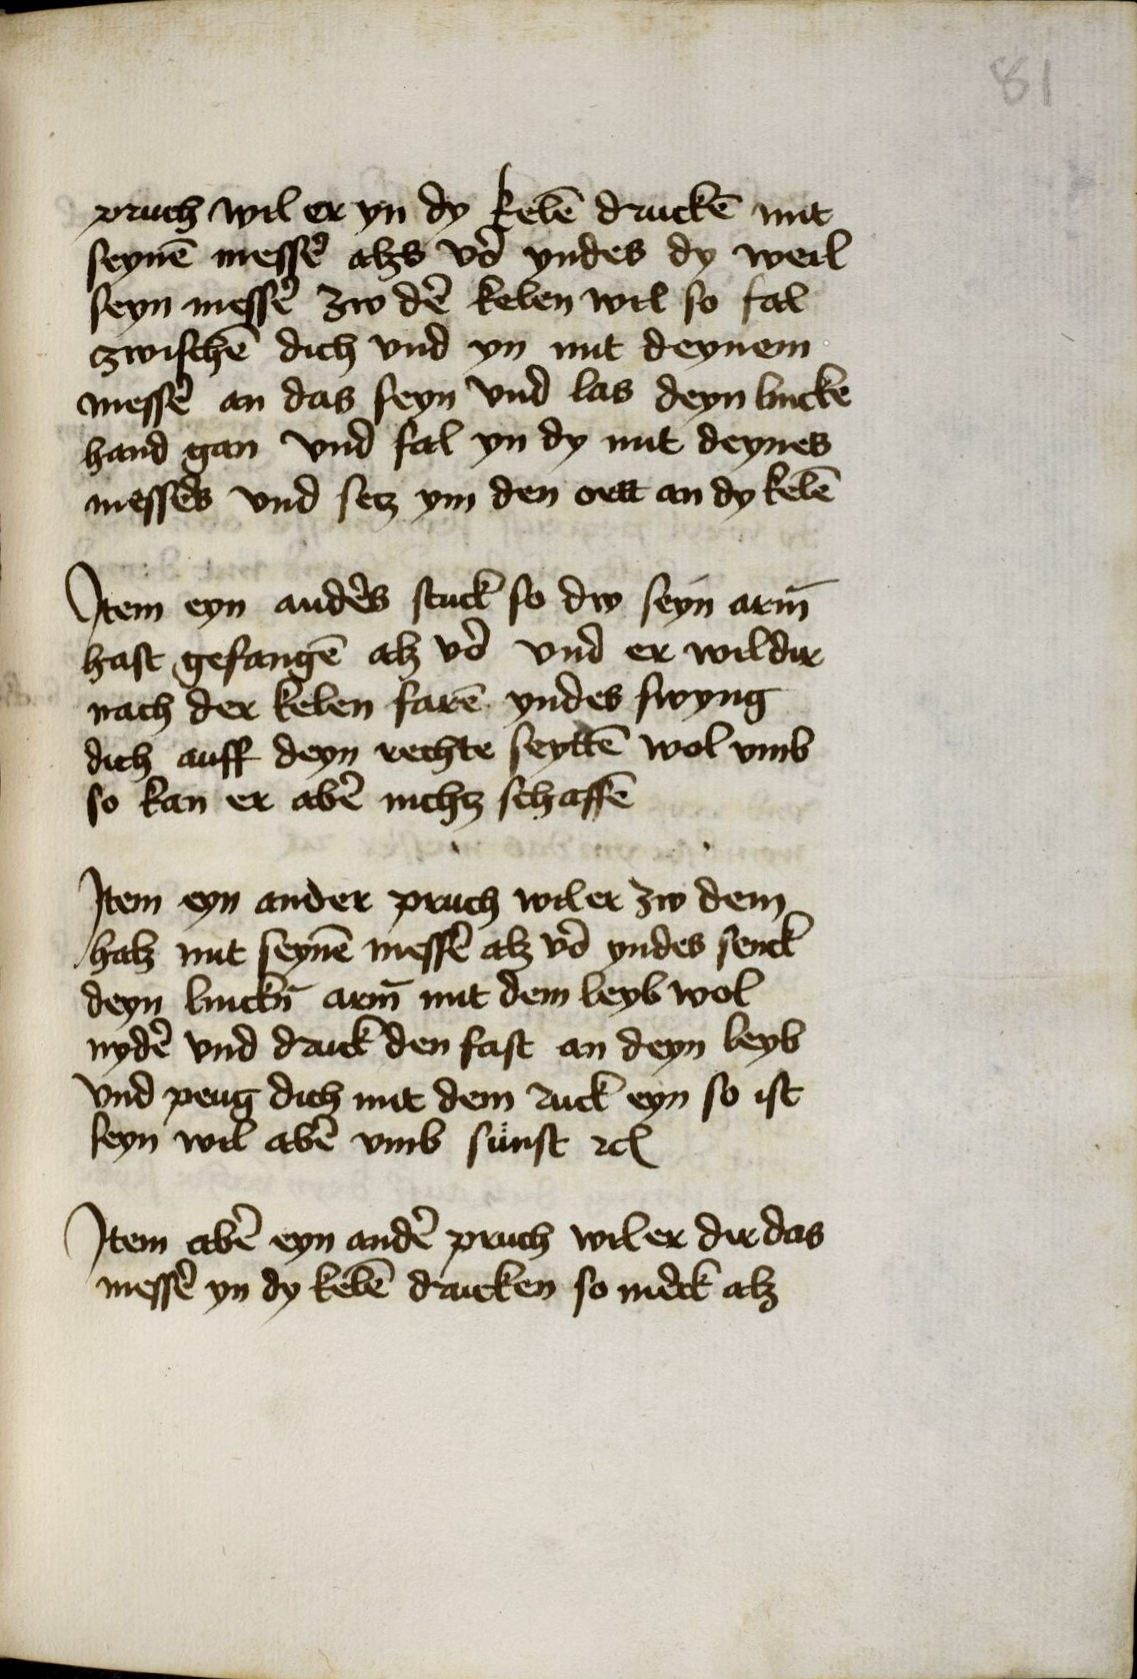 81
pruch wil er yn dy kelē druckē mit
seynē messe᷑ alzs vo᷑ yndes dy weil
seyn messe᷑ zw de᷑ kelen wil so fal
zwischē dich vnd yn mit deynem
messe᷑ an das seyn vnd las deyn lincke
hand gan vnd fal yn dy mit deynes
messe᷑s vnd setz ym den ortt an dy kelē
Item eyn ande᷑s stuck so dw seyn arm̄
hast gefangē alz vo᷑ vnd er wil dir
nach der kelen farē yndes swyng
dich auff deyn rechte seyttē wol vmb
so kan er abe᷑ nichtz schaffē
Item eyn ander pruch wil er zw dem
halz mit seynē messe᷑ alz vo᷑ yndes senck
deyn linckn̄ arm̄ mit dem leyb wol
nyde᷑ vnd druck den fast an deyn leyb
vnd peug dich mit dem ruck eyn so ist
seyn wil abe᷑ vmb sünst ꝛc
Item abe᷑ eyn ande᷑ pruch wil er dir das
messe᷑ yn dy kelē drucken so me᷑ck alz